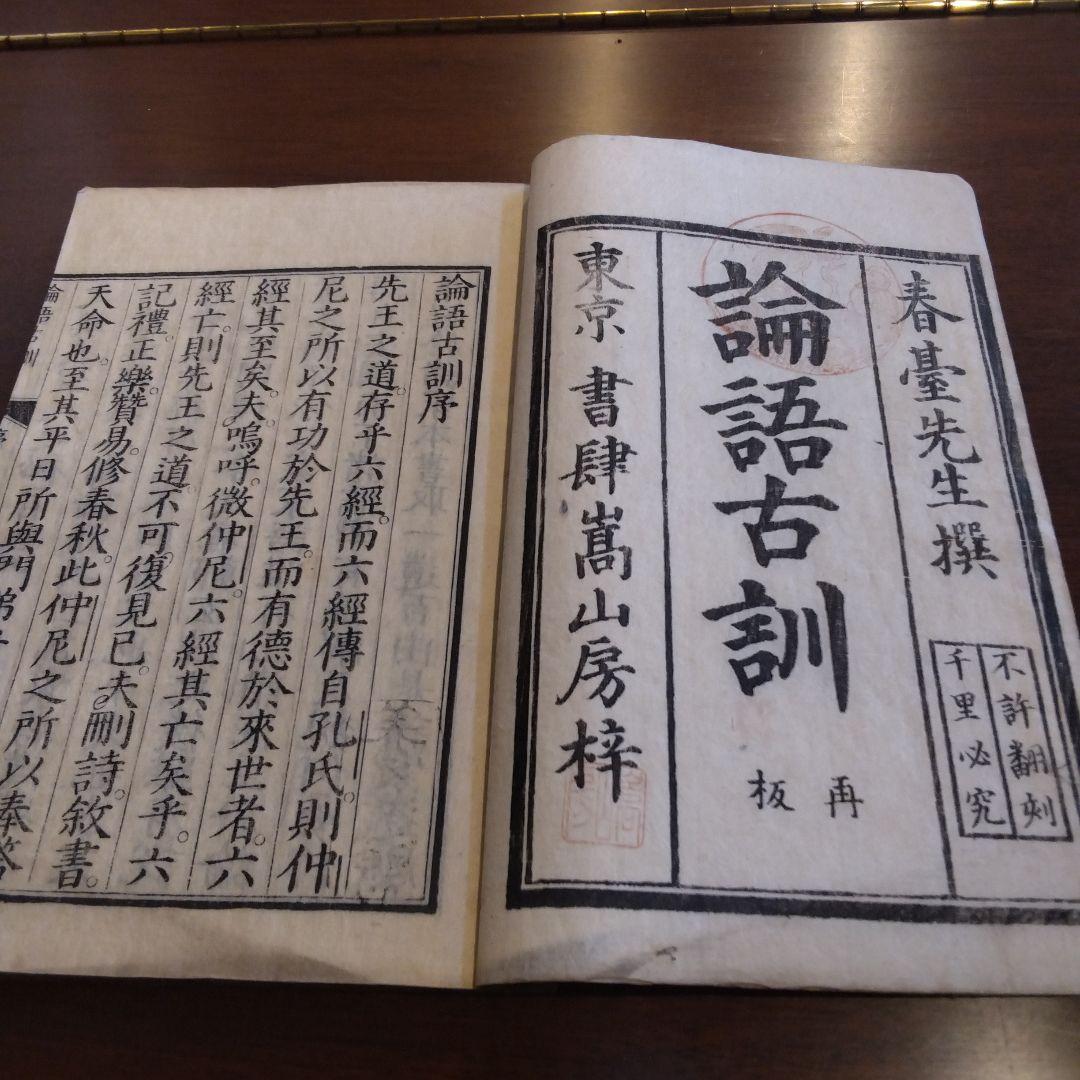 春臺先生撰
不許翻刻
千里必究
論語古訓
再板
東京 書肆嵩山房梓
論語古訓序
先王之道。存乎六經。而六經傳自孔氏。則仲
尼之所以有功於先王。而有德於來世者。六
經其至矣。夫。嗚呼。微仲尼。六經其亡矣乎。六
經亡。則先王之道。不可復見已。夫刪詩。敘書。
記禮。正樂。贊易。修春秋。此仲尼之所以奉
天命也。至其平日所與門弟子
論語古訓